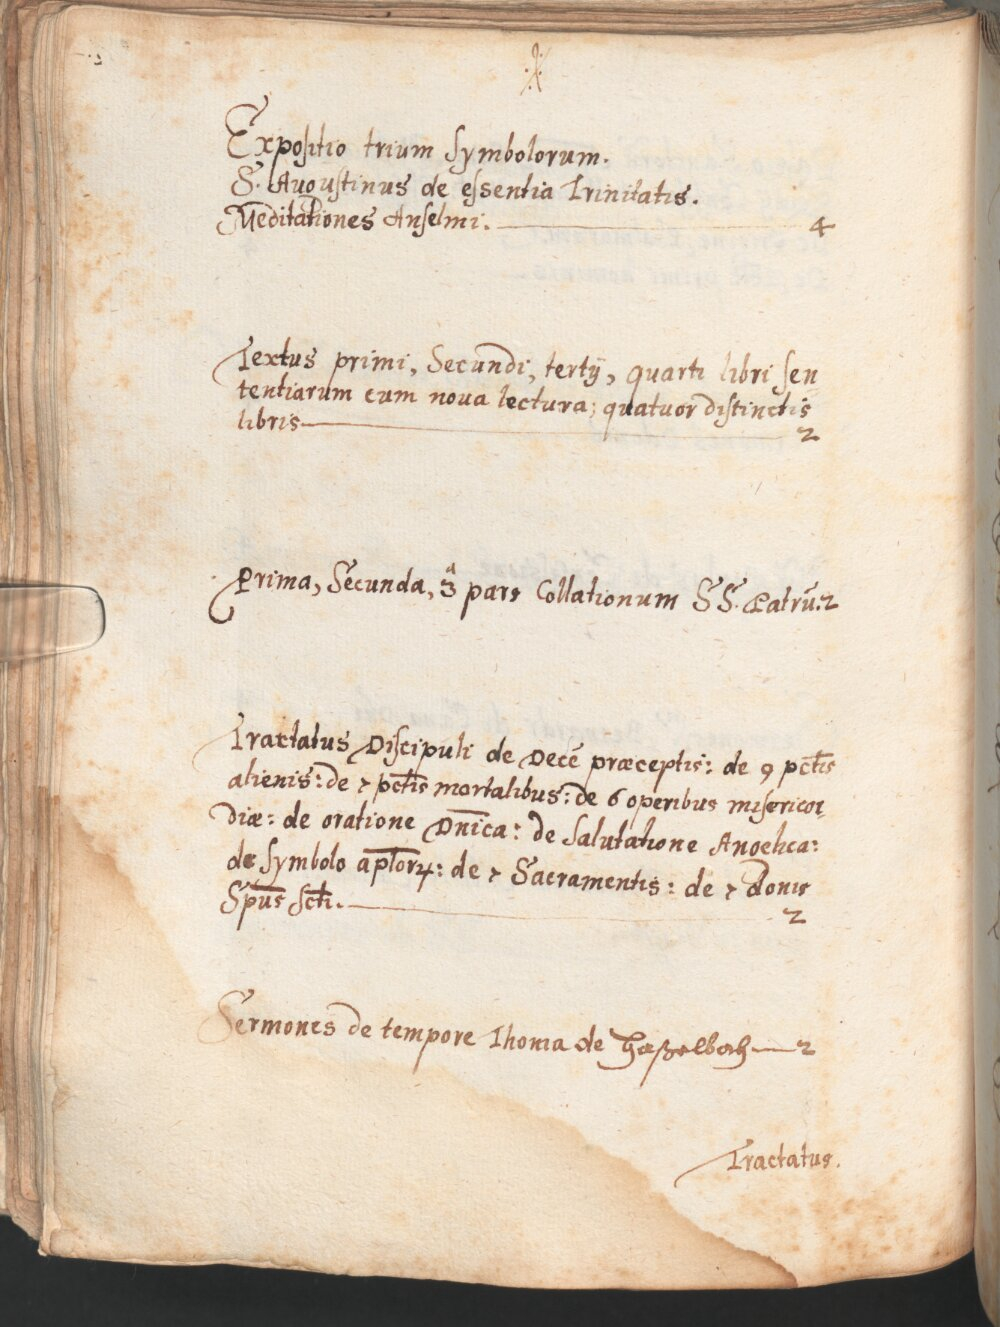 Expositio trium symbolorum.
S. Augustinus de essentia Trinitatis.
Meditationes Anselmi. 4
Textus primi, Secundi, tertij, quarti libri sen
tentiarum cum nova lectura; quatuor distinctis
libris 2
Prima, Secunda, 3ª pars Collationum S S. Patrū. 2
Tractatus Discipuli de Decē præceptis: de 9 pctis
alienis: de 7 pctis mortalibus: de 6 operibus misericor
diæ: de oratione Dnica: de Salutatione Angelica:
de Symbolo aplorꝝ: de 7 Sacramentis: de 7 donis
Spūs scti. 2
Sermones de tempore Thoma de Haßelbach 2
Tractatus.